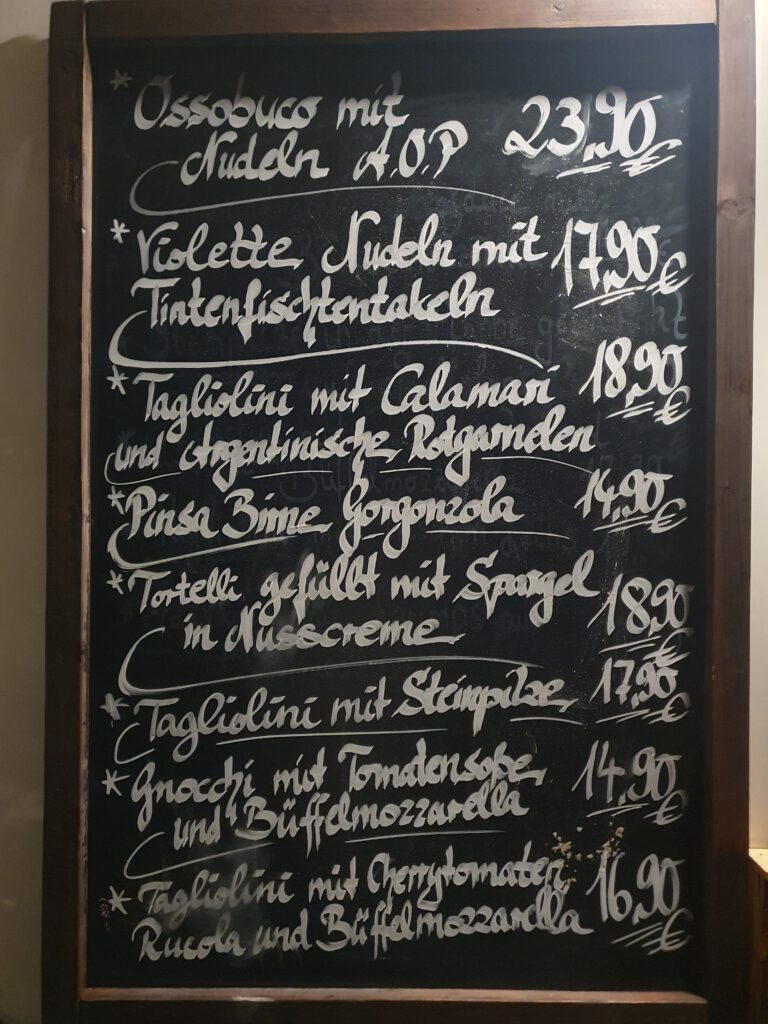 * Ossobuco mit
Nudeln A.O.P 23,90 €
* Violette Nudeln mit 17,90 €
Tintenfischtentakeln
* Tagliolini mit Calamari 18,90 €
und Argentinische Rotgarnelen
* Pinsa Birne Gorgonzola 14,90 €
* Tortelli gefüllt mit Spargel
in Nusscreme 18,90 €
* Tagliolini mit Steinpilze 17,90 €
* Gnocchi mit Tomatensoße 14,90 €
und Büffelmozzarella
* Tagliolini mit Cherrytomaten 16,90 €
Rucola und Büffelmozzarella